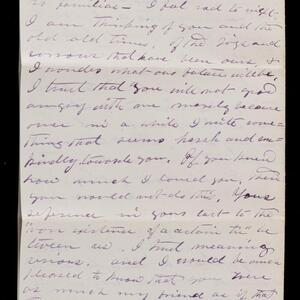 so familiar— I feel sad to-night.
I am thinking of you and the
old old times, of the joys and
sorrows that have been ours, &
I wonder what our future will be.
I trust that you will not feel
angry with me merely because
once in a while I write some-
thing that seems harsh and un-
kindly towards you. If you knew
how much I loved you,
you would not do this. Your
reference in yours last to the
"non existence of a certain tie" be
tween us, I trust meaning
. and I would be more
pleased to know that you were
as much my friend as if that